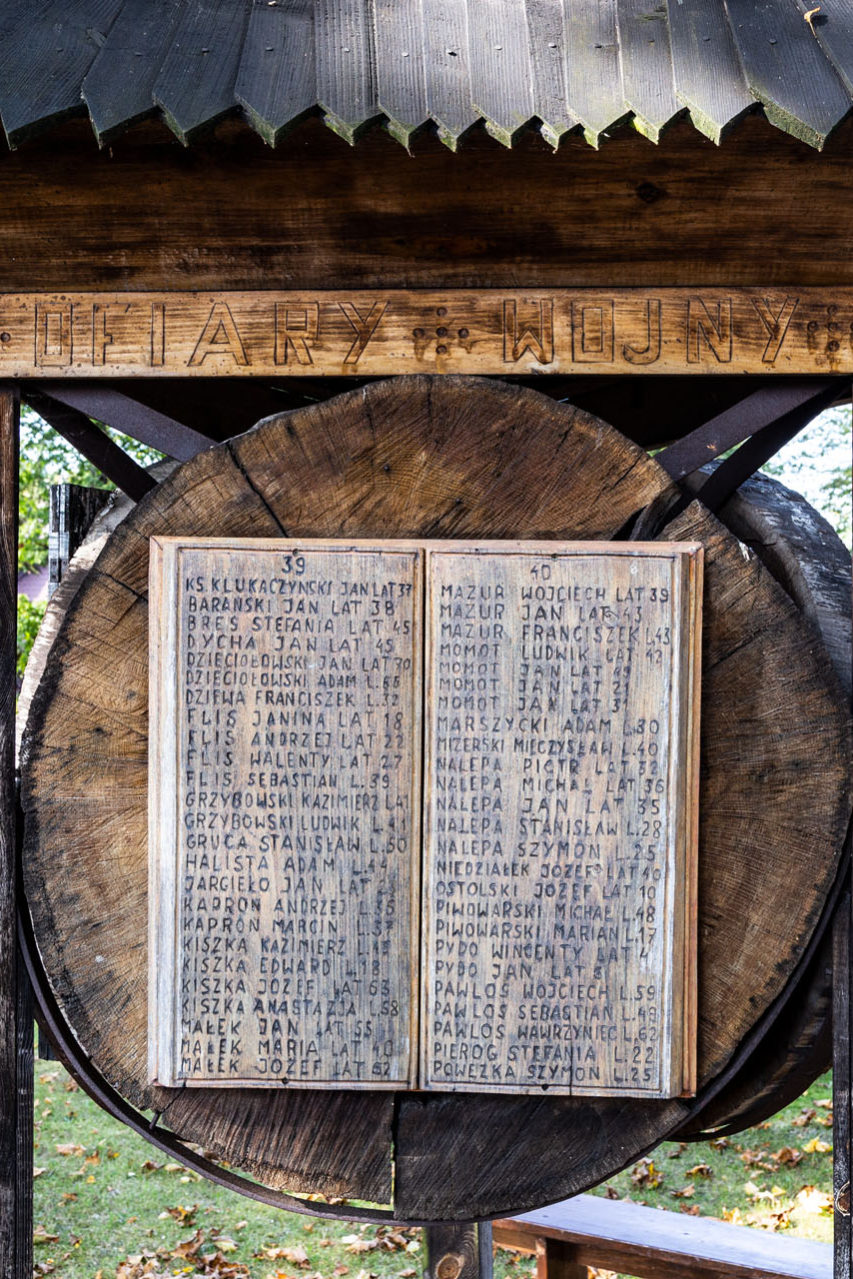 OFIARY WOJNY
39
KS. KLUKACZYŃSKI JAN LAT 37
BARAŃSKI JAN LAT 38
BRES STEFANIA LAT 45
DYCHA JAN LAT 45
DZIECIOŁOWSKI JAN LAT 30
DZIECIOŁOWSKI ADAM L.66
DZIEWA FRANCISZEK L.32
FLIS JANINA LAT 18
FLIS ANDRZEJ LAT 22
FLIS WALENTY LAT 27
FLIS SEBASTIAN L.39
GRZYBOWSKI KAZIMIERZ L.41
GRZYBOWSKI LUDWIK L.41
GRUCA STANISŁAW L.50
HALISTA ADAM L.44
JARGIEŁO JAN LAT
KAPRON ANDRZEJ L.35
KAPRON MARCIN L.37
KISZKA KAZIMIERZ L.
KISZKA EDWARD L.18
KISZKA JÓZEF LAT 63
KISZKA ANASTAZJA L.58
MAŁEK JAN LAT 55
MAŁEK MARIA LAT 40
MAŁEK JOZEF LAT 62
40
MAZUR WOJCIECH LAT 39
MAZUR JAN LAT 43
MAZUR FRANCISZEK L.43
MOMOT LUDWIK LAT 42
MOMOT JAN LAT 49
MOMOT JAN LAT 21
MOMOT JAN LAT 31
MARSZYCKI ADAM L.30
MIZERSKI MIECZYSŁAW L.40
NALEPA PIOTR LAT 32
NALEPA MICHAŁ LAT 36
NALEPA JAN LAT 35
NALEPA STANISŁAW L.28
NALEPA SZYMON L.25
NIEDZIAŁEK JÓZEF LAT 40
OSTOLSKI JÓZEF LAT 10
PIWOWARSKI MICHAŁ L.48
PIWOWARSKI MARIAN L.17
PYDO WINCENTY LAT
PYDO JAN LAT
PAWLOS WOJCIECH L.59
PAWLOS SEBASTIAN L.49
PAWLOS WAWRZYNIEC L.62
PIEROG STEFANIA L.22
POWEZKA SZYMON L.25